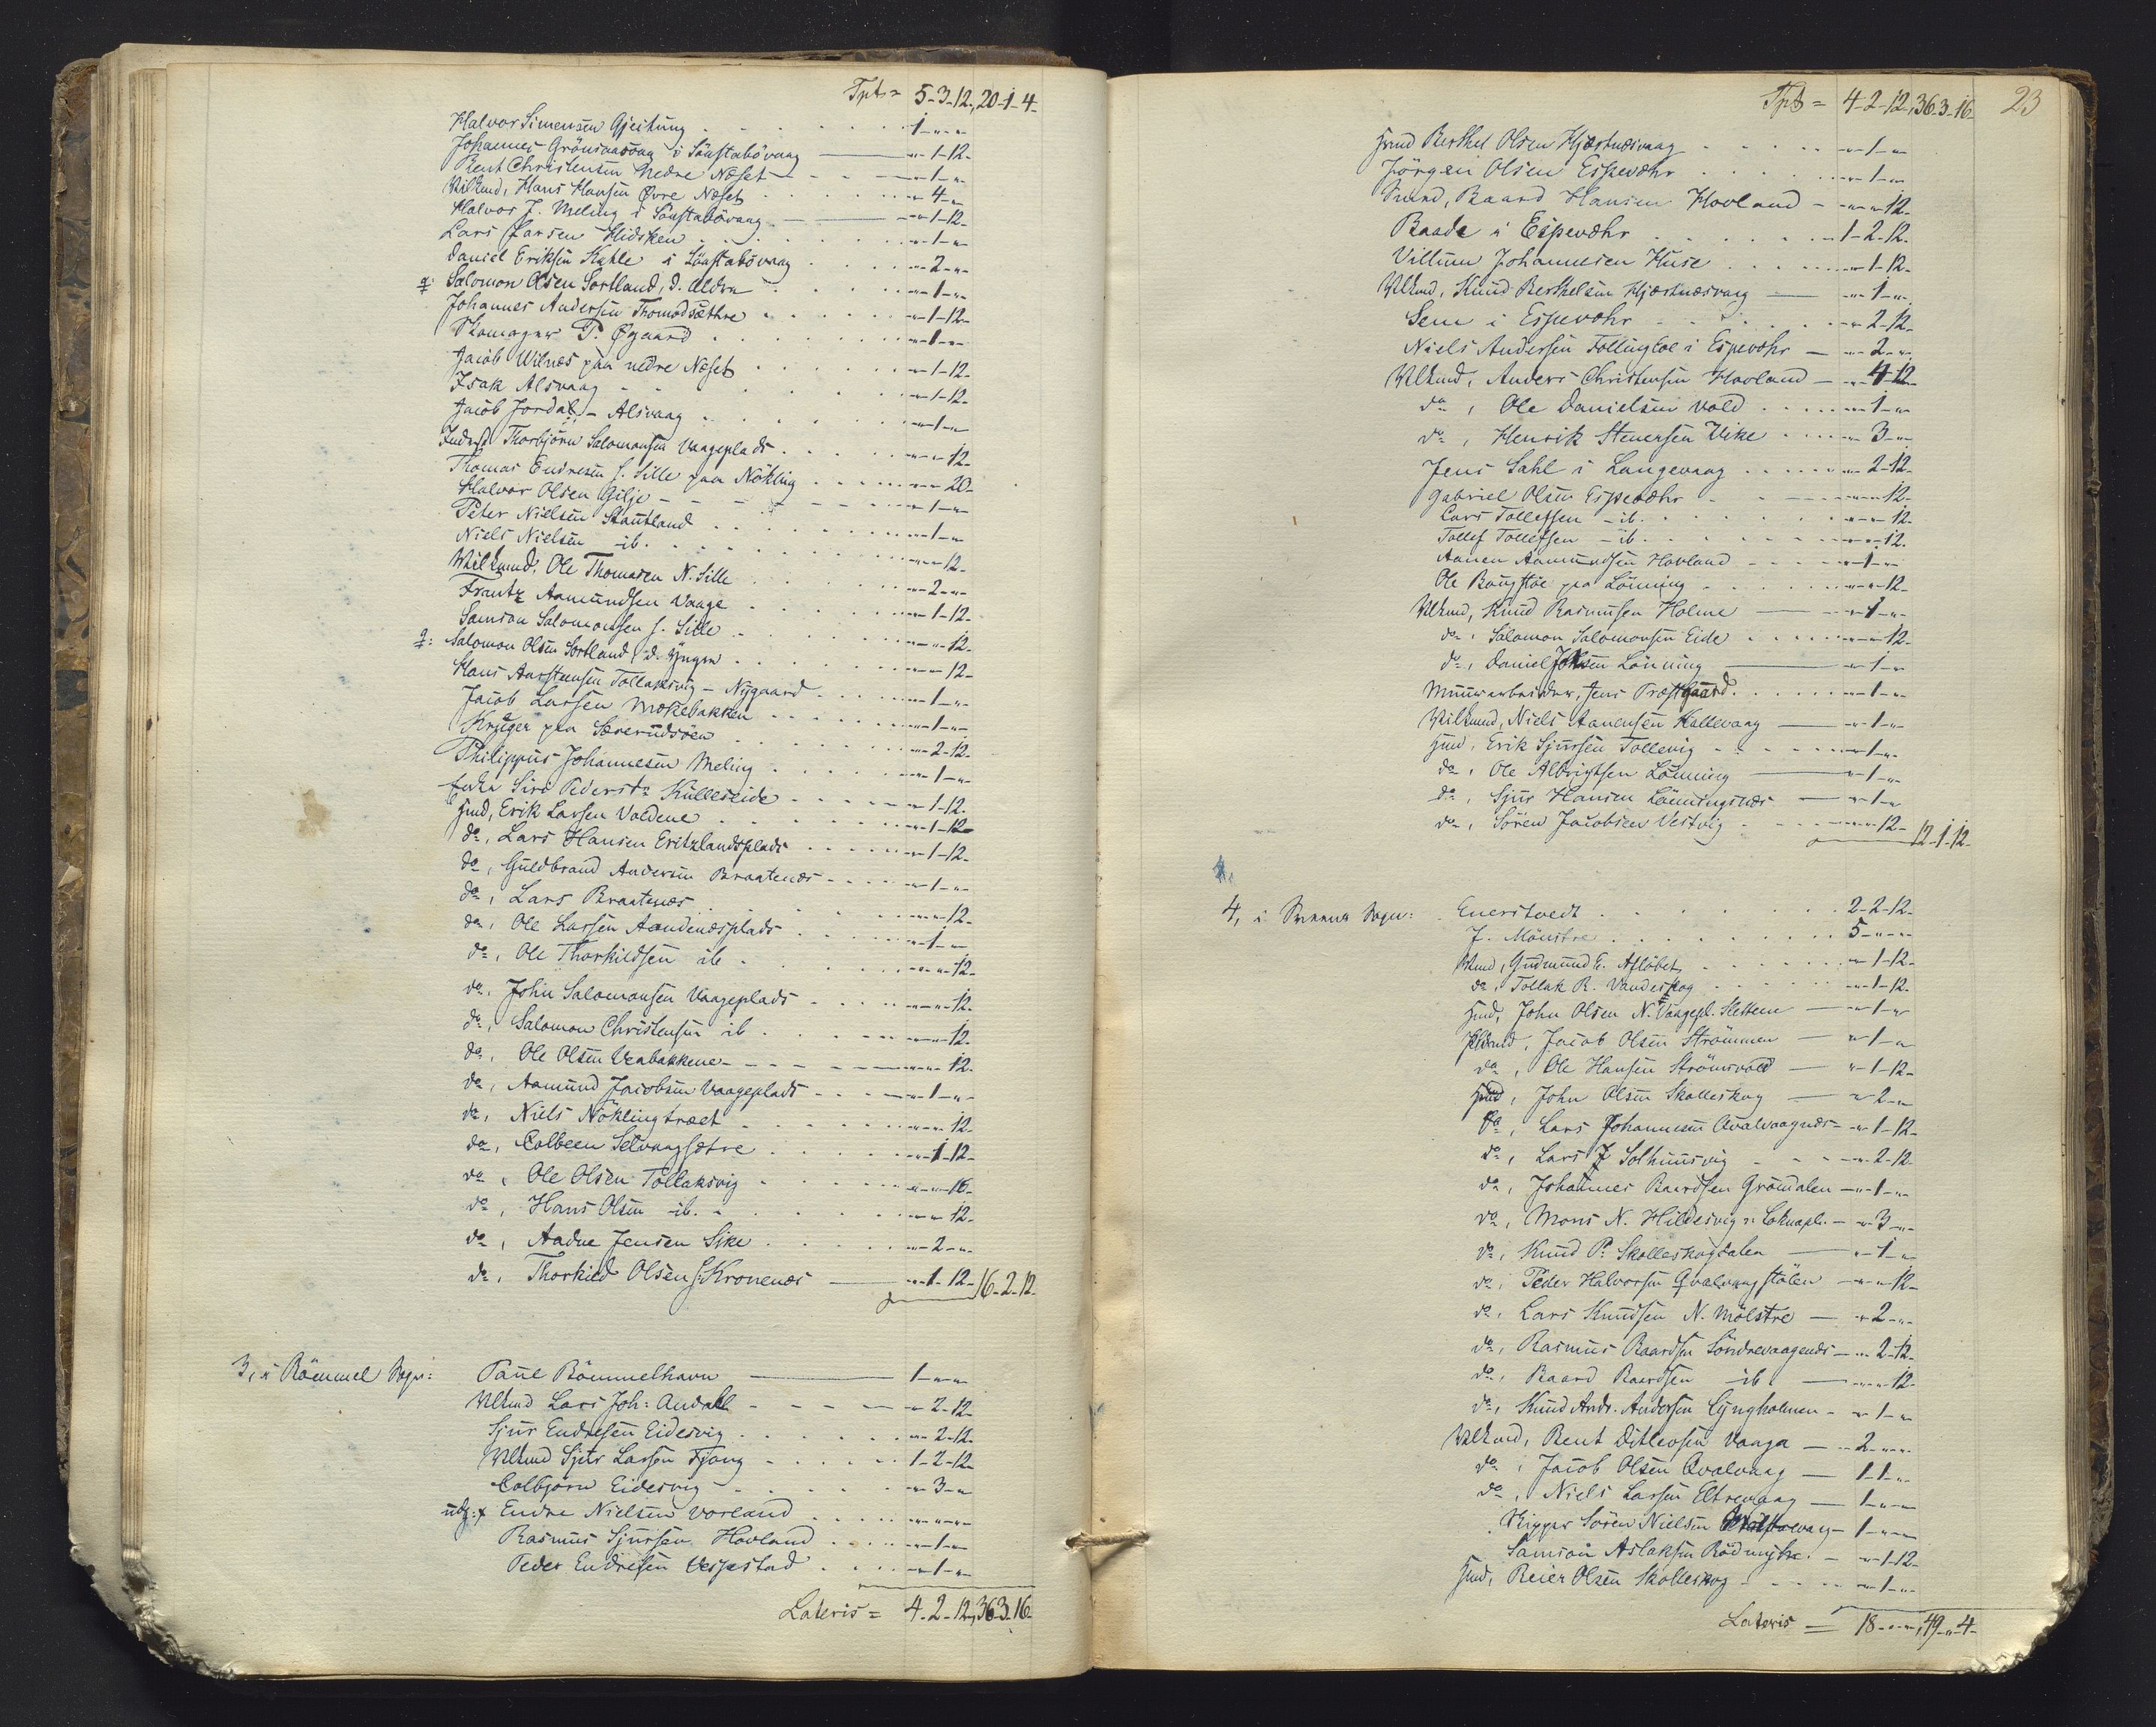 Tpt = 5-3-12, 20-1-4-
Halvor Simensen Gjeitung . . . 1-"-"-
Johannes Grönnaasvaag i Söustabövaag — "-1-12-
Bent Christensen Nedre Næset - - - "-1-"-
Vilkmd, Hans Hansen Øvre Næset . . "-4-"-
Halvor J. Meling i Söustabövaag — "-1-12-
Lars Larsen Hidsken . . . "-1-"-
Daniel Eriksen Kahle i Söustabövaag . . "-2-"-
q: Salomon Olsen Sortland, d. Ældre . . "-1-"-
Johannes Andersen Thomassæthre . . . "-1-12-
Skomager P. Øgaard . . . "-1-"-
Jacob Wilnæs paa nedre Næset . . . "-1-12-
Isak Alsvaag . . . "-1-12-
Jacob Jordal - Alsvaag . . . "-1-"-
Inderst Thorbjörn Salomonsen Vaageplads . . . "-"-12-
Thomas Endresen S. Sille paa Nökling . . . "-"-20-
Halvor Olsen Gilje - - - "-1-"-
Peter Nielsen Stautland . . . "-1-"-
Niels Nielsen ib. . . . "-"-12-
Wilkmd. Ole Thomasen N. Sille . . . "-2-"-
Frantz Aamundsen Vaage . . . "-1-12-
Samson Salomonsen S. Sille . . . "-"-12-
q: Salomon Olsen Sortland, d. Yngre . . . "-"-12-
Hans Aarstensen Tollaksvig - Nygaard . . . "-1-"-
Jacob Larsen Mækebakken . . . "-1-"-
Krüger paa Sörerudsöen . . . "-2-12-
Philippus Johannesen Meling . . . "-1-"-
Enke Siri Pedersdtr Kulleseide . . . "-1-12-
Hmd, Erik Larsen Valdene . . . "-1-12-
do, Lars Hansen Eritzlandsplads . . . "-1-12-
do, Guldbrand Andersen Braatenæs . . . "-1-"-
do, Lars Braatenæs . . . "-"-12-
do, Ole Larsen Aandenæsplads . . . "-1-"-
do, Ole Thorkildsen ib . . . "-"-12-
do, John Salomonsen Vaageplads . . . "-"-12-
do, Salomon Christensen ib . . . "-"-12-
do, Ole Olsen Veabakkene - - - "-"-12-
do, Aamund Jacobsen Vaageplads - - - "-1-"-
do, Niels Nöklingtræet . . . "-"-12-
do, Colbeen Selvaagsætre . . . "-1-12-
do, Ole Olsen Tollaksvig . . . "-"-16-
do, Hans Olsen ib. . . . "-"-12-
do, Aadne Jensen Sike . . . "-2-"-
do, Thorkild Olsen S. Kronenæs — "-1-12- 16-2-12-
3, i Bömmel Sogn:
Paul Bömmelhavn — 1-"-"-
Vilkmd Lars Joh: Andahl - - - "-2-12-
Sjur Endresen Eidesvig . . . "-2-12-
Vilkmd Sjur Larsen Fjong . . . 1-2-12-
Colbjörn Eidesvig . . . "-3-"-
udg: x Endre Nielsen Vorland . . . "-"-"-
Rasmus Sjursen Hovland . . . "-1-"-
Peder Endresen Vespestad . . . "-1-"-
Lateris = 4-2-12, 36-3-16-
Tpt = 4-2-12, 36-3-16- 23
Hmd Berthel Olsen Hjortnæsvaag . . . "-1-"-
Jörgen Olsen Espevæhr . . . "-1-"-
Smed, Baard Hansen Hovland - "-"-12-
Baade i Espevæhr . . . 1-2-12-
Villum Johannesen Huse . . . "-1-12-
Vilkmd, Knud Berthelsen Hjortnæsvaag — "-1-"-
Sem i Espevæhr . . . "-2-12-
Niels Andersen Follingloe i Espevæhr — "-2-"-
Vilkmd, Anders Christensen Hovland — "-4-12-
do, Ole Danielsen Vold . . . "-1-"-
do, Henrik Stenersen Vike . . . "-3-"-
Jens Sahl i Langevaag . . . "-2-12-
Gabriel Olsen Espevæhr . . . "-"-12-
Lars Tollefsen - ib. . . . "-"-12-
Tollef Tollefsen - ib. . . . "-"-12-
Aanen Aamundsen Hovland - - - "-1-"-
Ole Baugstöe paa Lönning . . . "-"-12-
Vilkmd, Knud Rasmussen Holme — "-1-"-
do, Salomon Salomonsen Eide . . . "-"-12-
do, Daniel Johnsen Lönning — "-1-"-
Muurarbeider, Jens Præstgaard . . . "-1-"-
Vilkmd, Niels Aanensen Kallevaag — "-1-"-
Hmd, Erik Sjursen Tollevig . . . "-1-"-
do, Ole Albrigtsen Lönning — "-1-"-
do, Sjur Hansen Lönningsnæs — "-1-"-
do, Sören Jacobsen Vestvig . . . "-"-12- 12-1-12-
4, i Sogn:
Enerstvedt . . . 2-2-12-
J. Mönstre . . . 5-"-"-
Vkmd, Gudmund E. Aflöbet . . . "-1-12-
do, Tollak R. Vandeskog . . . "-1-12-
Hmd, John Olsen N. Vaagepl. Sletten — "-1-"-
Vilkmd, Jacob Olsen Strömmen — "-1-"-
do, Ole Hansen Strömsvold — "-1-12-
Hmd, John Olsen Skolleskog — "-2-"-
do, Lars Johannesen Qvalvaagnæs - "-1-12-
do, Lars J Solhuusvig . . . "-2-12-
do, Johannes Baardsen Gröndalen — "-1-"-
do, Mons N. Hildesvig — "-3-"-
do, Knud P. Skolleskogdalen — "-1-"-
do, Peder Halvorsen Qvalvaagstölen — "-"-12-
do, Lars Knudsen N. Mölstre — "-2-"-
do, Rasmus Baardsen Söndrevaagenæs — "-2-12-
do, Baard Baardsen ib. — "-"-12-
do, Knud Andr. Andersen Lyngholmen - "-1-"-
Vilkmd, Bent Ditlevsen Vaage — "-2-"-
do, Jacob Olsen Qvalvaag — 1-1-"-
do, Niels Larsen Eltrevaag — 1-"-"-
Skipper Sören Nielsen — 1-"-"-
Samson Aslaksen Rödmyhr - "-1-12-
Hmd, Reier Olsen Skolleskog - - - "-1-"-
Lateris = 18-"-", 49-"-4-